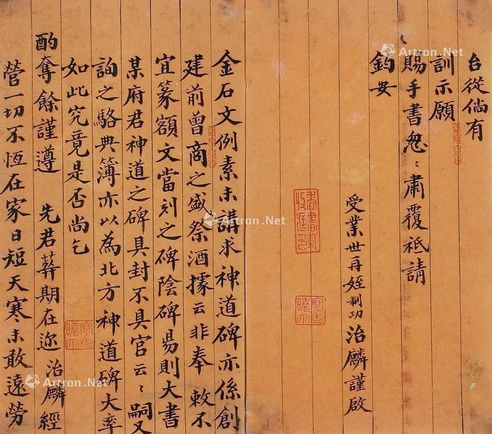 台從倘有
訓示願
賜手書怱〻肅覆祗請
鈞安
受業世再姪制功治麟謹啟
金石文例素未講求神道碑亦係創
建前曾商之盛祭酒據云非奉敕不
宜篆額文當刻之碑陰碑昜則大書
某府君神道之碑具封不具官云〻嗣又
詢之駱典簿亦以為北方神道碑大率
如此究竟是否尚乞
酌奪餘謹遵 先君葬期在邇治麟經
營一切不恆在家日短天寒未敢遠勞
Artron.Net
Artron.Net
Artron.Net
Artron.Net